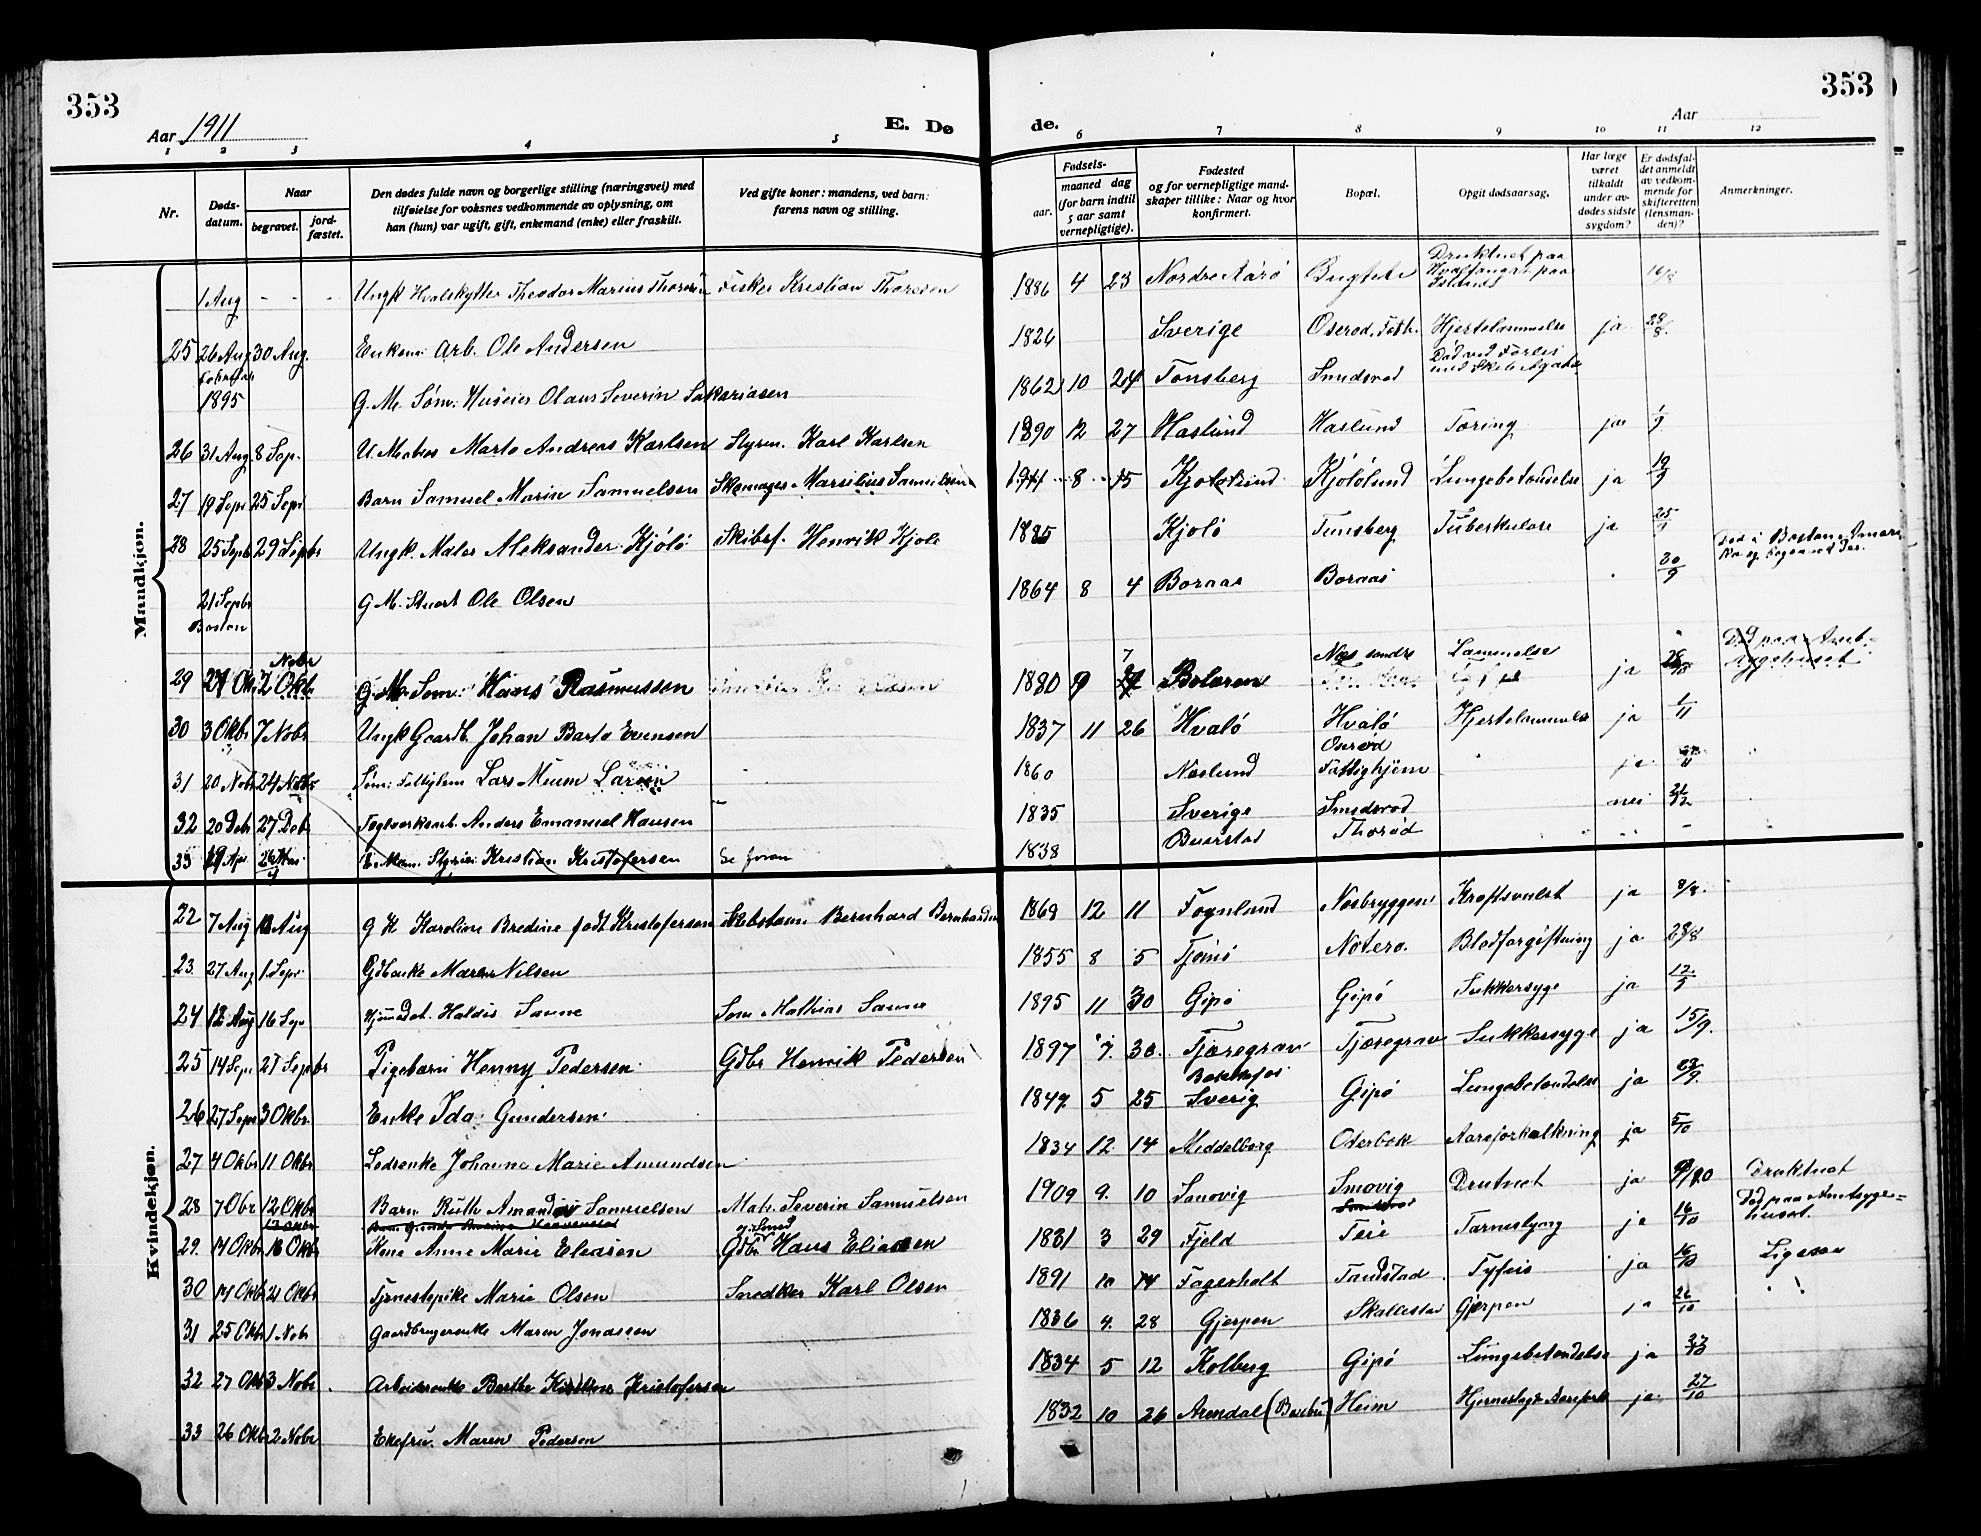 353
353
Aar 1911
E. Dø
de.
Aar
1 2 3 4 5 6 7 8 9 10 11 12
Nr.
Døds-
datum.
Naar
begravet.
jord-
fæstet.
Den dødes fulde navn og borgerlige stilling (næringsvei) med
tilføielse for voksnes vedkommende av oplysning, om
han (hun) var ugift, gift, enkemand (enke) eller fraskilt.
Ved gifte koner: mandens, ved barn:
farens navn og stilling.
Fødsels-
aar.
maaned dag
(for barn indtil
5 aar samt
vernepligtige).
Fødested
og for vernepligtige mand-
skaper tillike: Naar og hvor
konfirmert.
Bopæl.
Opgit dødsaarsag.
Har læge
været
tilkaldt
under av-
dødes sidste
sygdom?
Er dødsfal-
det anmeldt
av vedkom-
mende for
skifteretten
(lensman-
den)?
Anmerkninger.
Mandkjøn.
1 Aug - - - Ungk Hvalskytter Theodor Marius Thoresen Fisker Kristian Thoresen 1886 4 23 Nordre Aarø Bugten Druknet paa Hvalfangst paa Island 16/8
25 26 Aug 30 Aug. Enkem: Arb. Ole Andersen 1826 Sverige Oserød Hjertelammelse ja 28/8
1895 G. M. Søm: Huseier Olaus Severin Sakariasen 1862 10 24 Tønsberg Smidsrød Død ved Forlis med Skib Agate
26 31 Aug 8 Sep. U. Matros Marto Andreas Karlsen Styrm. Karl Karlsen 1890 12 27 Haslund Haslund Tæring ja 1/9
27 19 Sept 25 Sept Barn Samuel Marin Samuelsen Skomager Marsilius Samuelsen 1911 8 15 Kjølelund Kjølelund Lungebetændelse ja 19/9
28 25 Septb 29 Septbr Ungk. Maler Aleksander Kjølø Skibsf. Henrik Kjølø 1885 Kjolø Tunsberg Tuberkulose ja 25/9
21 Septbr Boston G. M. Stuert Ole Olsen 1864 8 4 Boraas Boraas 30/9 Død i Boston Amerika og begravet der.
29 Nobr G. M. Søm: Hans Rasmussen 1880 9 7 Bolæren Næs søndre Lammelse ja Død paa Amtsygehuset
30 3 Okbr 7 Nobr Ungk Gaardb. Johan Barto Evensen 1837 11 26 Hvalø Hvalø Hjertelammelse ja 1/11
31 20 Nobr 24 Nobr Søm: Fattiglem Lars Mium Larsen 1860 Næslund Oserød Fattighjem ja
32 20 Deb 27 Deb Teglverksarb. Anders Emanuel Hansen 1835 Sverige Smidsrød nei
33 19 Apr E. Man. Styrm: Kristian Kristofersen Se foran 1838 Buerstad Thorød
Kvindekjøn.
22 7 Aug Aug G K Karoline Bredine født Kristofersen Skibstøm Bernhard Bernhardsen 1869 12 11 Fognlund Nesbryggen Kræftsvulst ja 8/8.
23 27 Aug 1 Sept Gdbenke Maren Nilsen 1855 8 5 Tjømø Noterø. Blodforgiftning ja 28/8
24 12 Aug 16 Sep Hjemdat. Haldis Sanne Søm Mathias Sanne 1895 11 30 Gipø Gipø Sukkersyge ja 12/9
25 14 Sept 21 Septbr Pigebarn Henny Pedersen Gdbr Henrik Pedersen 1897 7. 30. Tjæregrav Tjæregrav Sukkersyge ja 15/9.
26 27 Sept 3 Okbr. Enke Ida Gundersen 1849 5 25 Sverig Gipø Lungebetændelse ja
27 4 Okbr 11 Okbr Lodsenke Johanne Marie Amundsen 1834 12 14 Middelborg Oterbek Aareforkalkning ja 5/10
28 7 Obr 12 Okbr Barn Ruth Amanda Samuelsen Matr. Severin Samuelsen 1909 9. 10 Smovig Smovig Drutnet ja Druktnet
29. 14 Okbr 18 Okbr Kone Anne Marie Eliasen Gdbr og Smed Hans Eliassen 1831 3 29 Fjeld Teie Tarneslyng ja 16/10 Død paa Amtsygehuset.
30 14 Okbr 21 Okbr Tjenestepike Marie Olsen Snedker Karl Olsen 1891 10 14 Fagerholt Tandstad Tyfeis ja 16/10 Ligesaa
31 25 Okbr 1 Nobr Gaardbrugerenke Maren Jonassen 1836 4. 28 Gjerpen Skallestad Gjerpen ja 26/10
32 27 Okbr 3 Nobr. Arbeiderenke Berthe Kristofersen 1834 5 12 Kolberg Gipø Lungebetændelse ja 27/10
33 26 Okbr 2 Nobr Ekefru. Maren Pedersen 1832 10 26 Arendal (Barbu) Heim Hjerneslag Aarefork ja 27/10